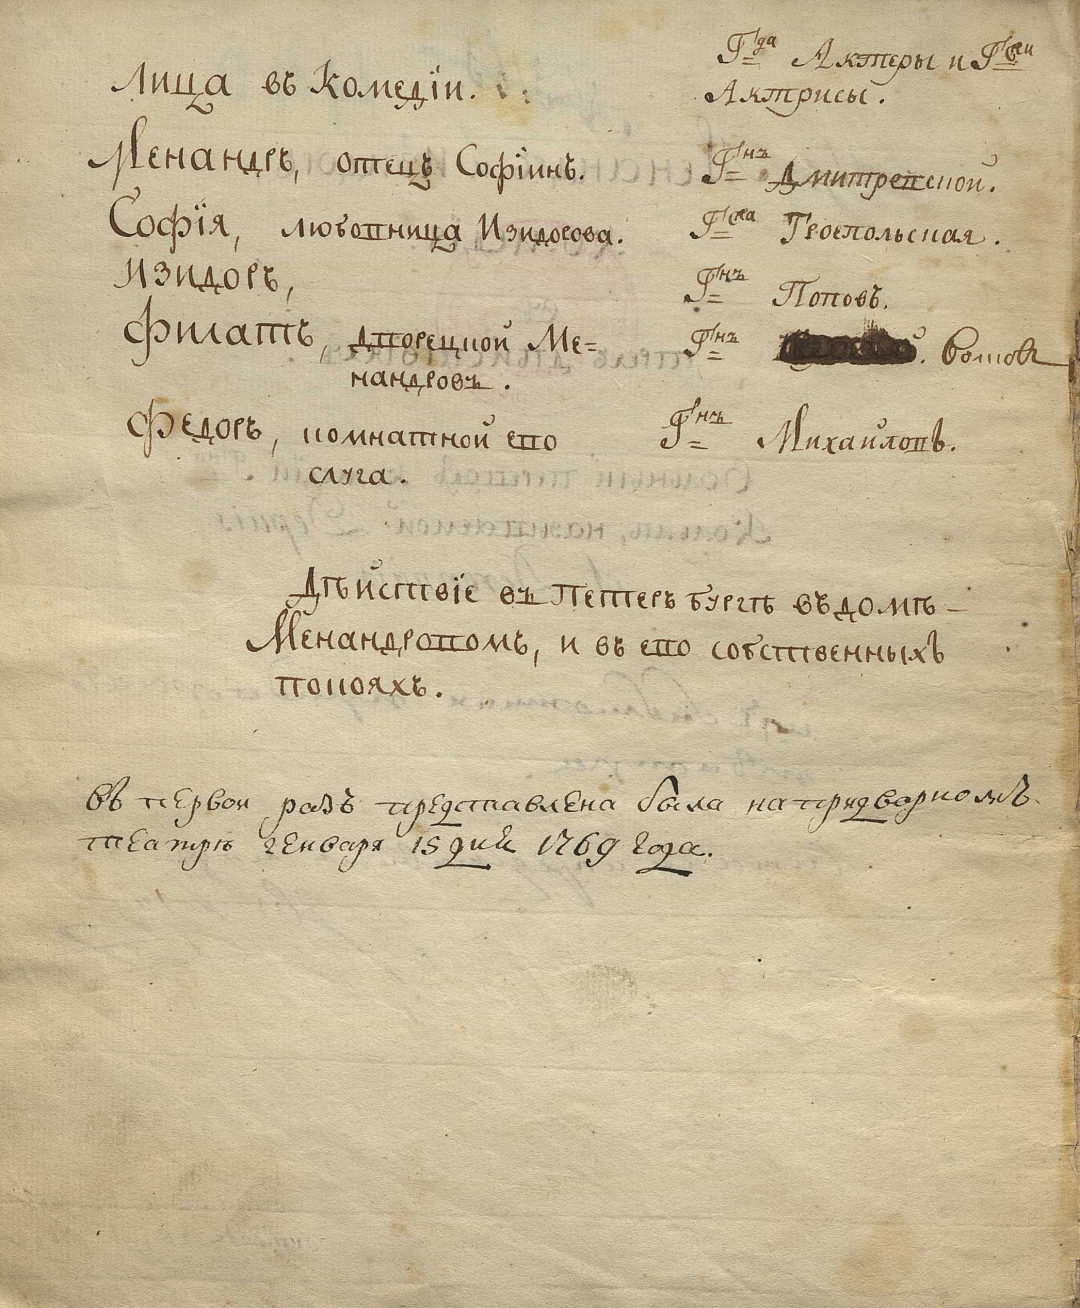 Г.да Актеры и Г.жи
Лица въ Комедіи.
Актрисы.
Менандръ, отецъ Софіинъ. Г.нъ Дмитревской.
Софія, любовница Изидорова. Г.жа Троепольская.
Изидоръ, Г.нъ Поповъ.
Филатъ, дворецкой Ме= Г.нъ Волковъ
нандровъ.
Федоръ, комнатной ево Г.нъ Михайловъ.
слуга.
Дѣйствіе въ Петербургѣ въ домѣ
Менандровомъ, и въ ево собственныхъ
покояхъ.
въ первой разъ представлена была на придворномъ
театрѣ генваря 15 дня 1769 года.